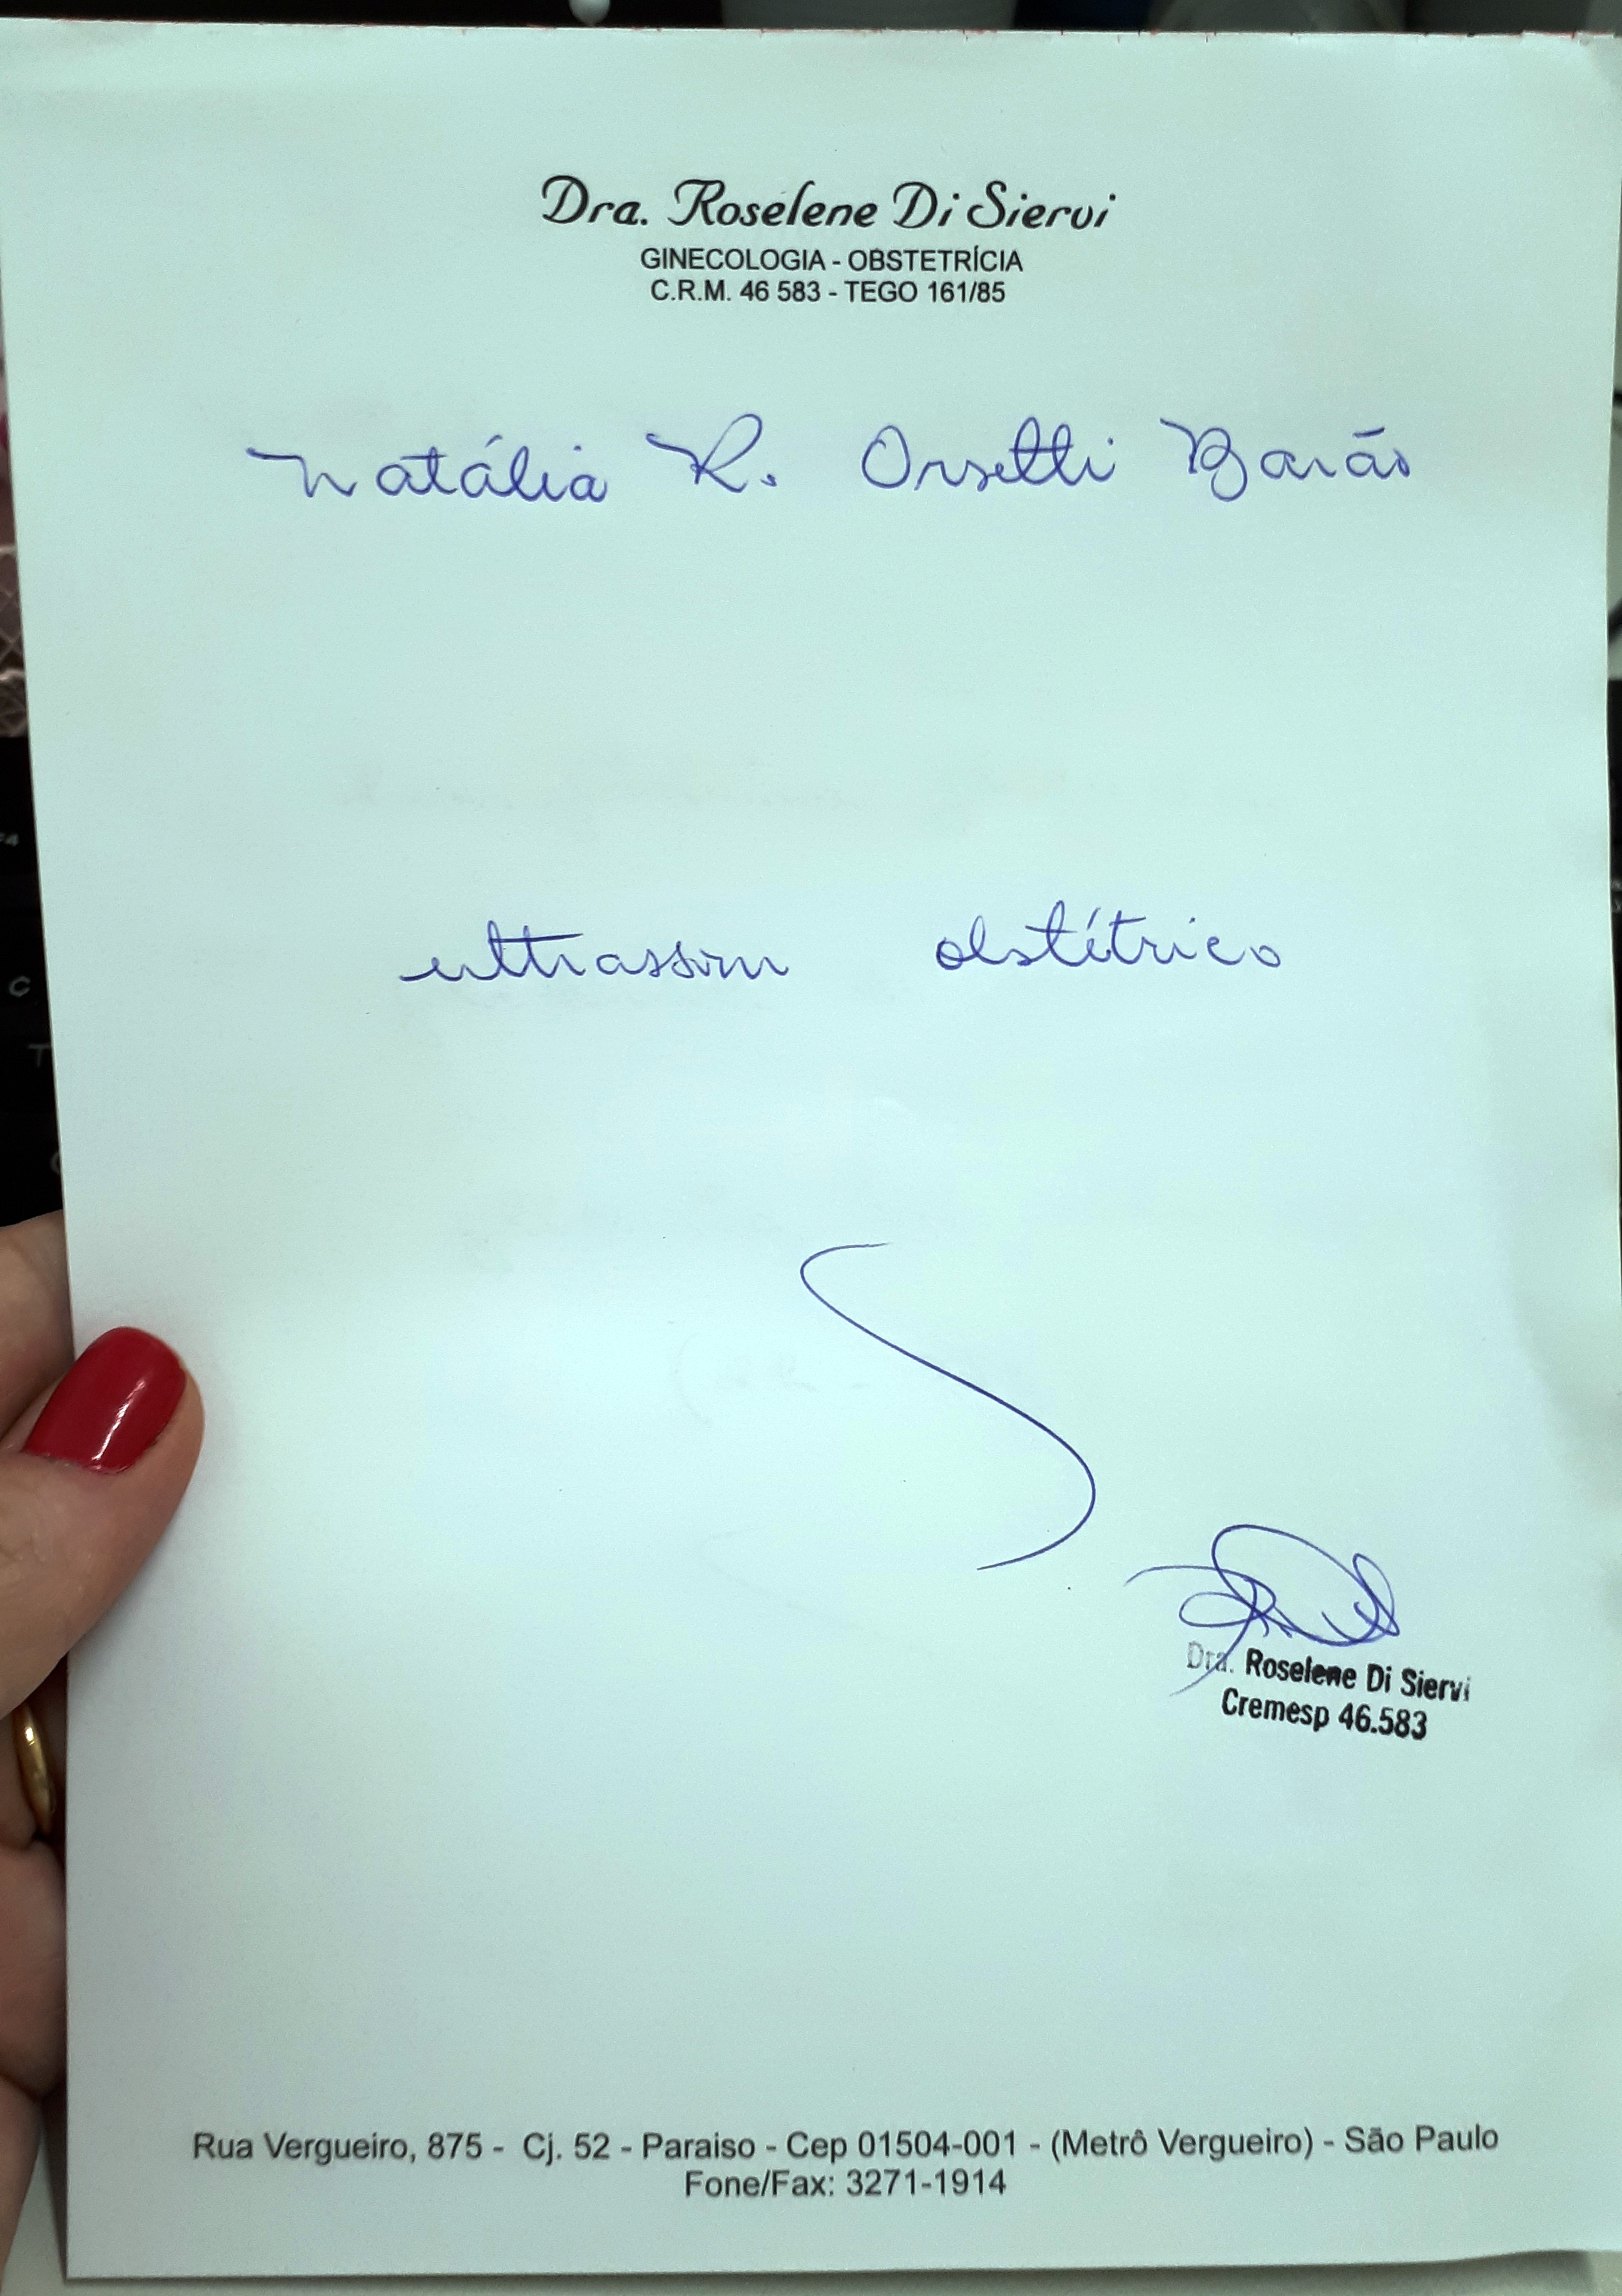 Dra. Roselene Di Siervi
GINECOLOGIA - OBSTETRÍCIA
C.R.M. 46 583 - TEGO 161/85
Natália R. Orsetti Barão
ultrassom obstétrico
Dra. Roselene Di Siervi
Cremesp 46.583
Rua Vergueiro, 875 - Cj. 52 - Paraiso - Cep 01504-001 - (Metrô Vergueiro) - São Paulo
Fone/Fax: 3271-1914